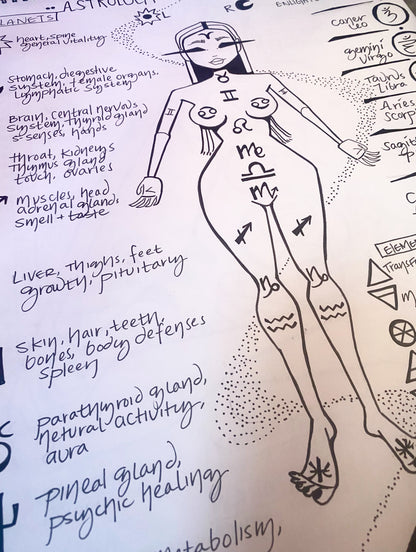 ASTROLOGY
PLANETS
heart, spine
general vitality
Stomach, diegestive
system, female organs,
Lymphatic system
Brain, central nervous
System, Thyroid gland
5 senses, hands
throat, kidneys
Thymus gland
touch, ovaries
muscles, head
adrenal gland,
smell + taste
LIVER, Thighs, feet
growth, pituitary
skin, hair, teeth,
bones, body defenses
spleen
parathyroid gland,
netural activity,
aura
pineal gland,
psychic healing
metabolism,
cancer
Leo
gemini
virgo
Taurus
Libra
Aries
Scorp
Sagit
ELEMEN